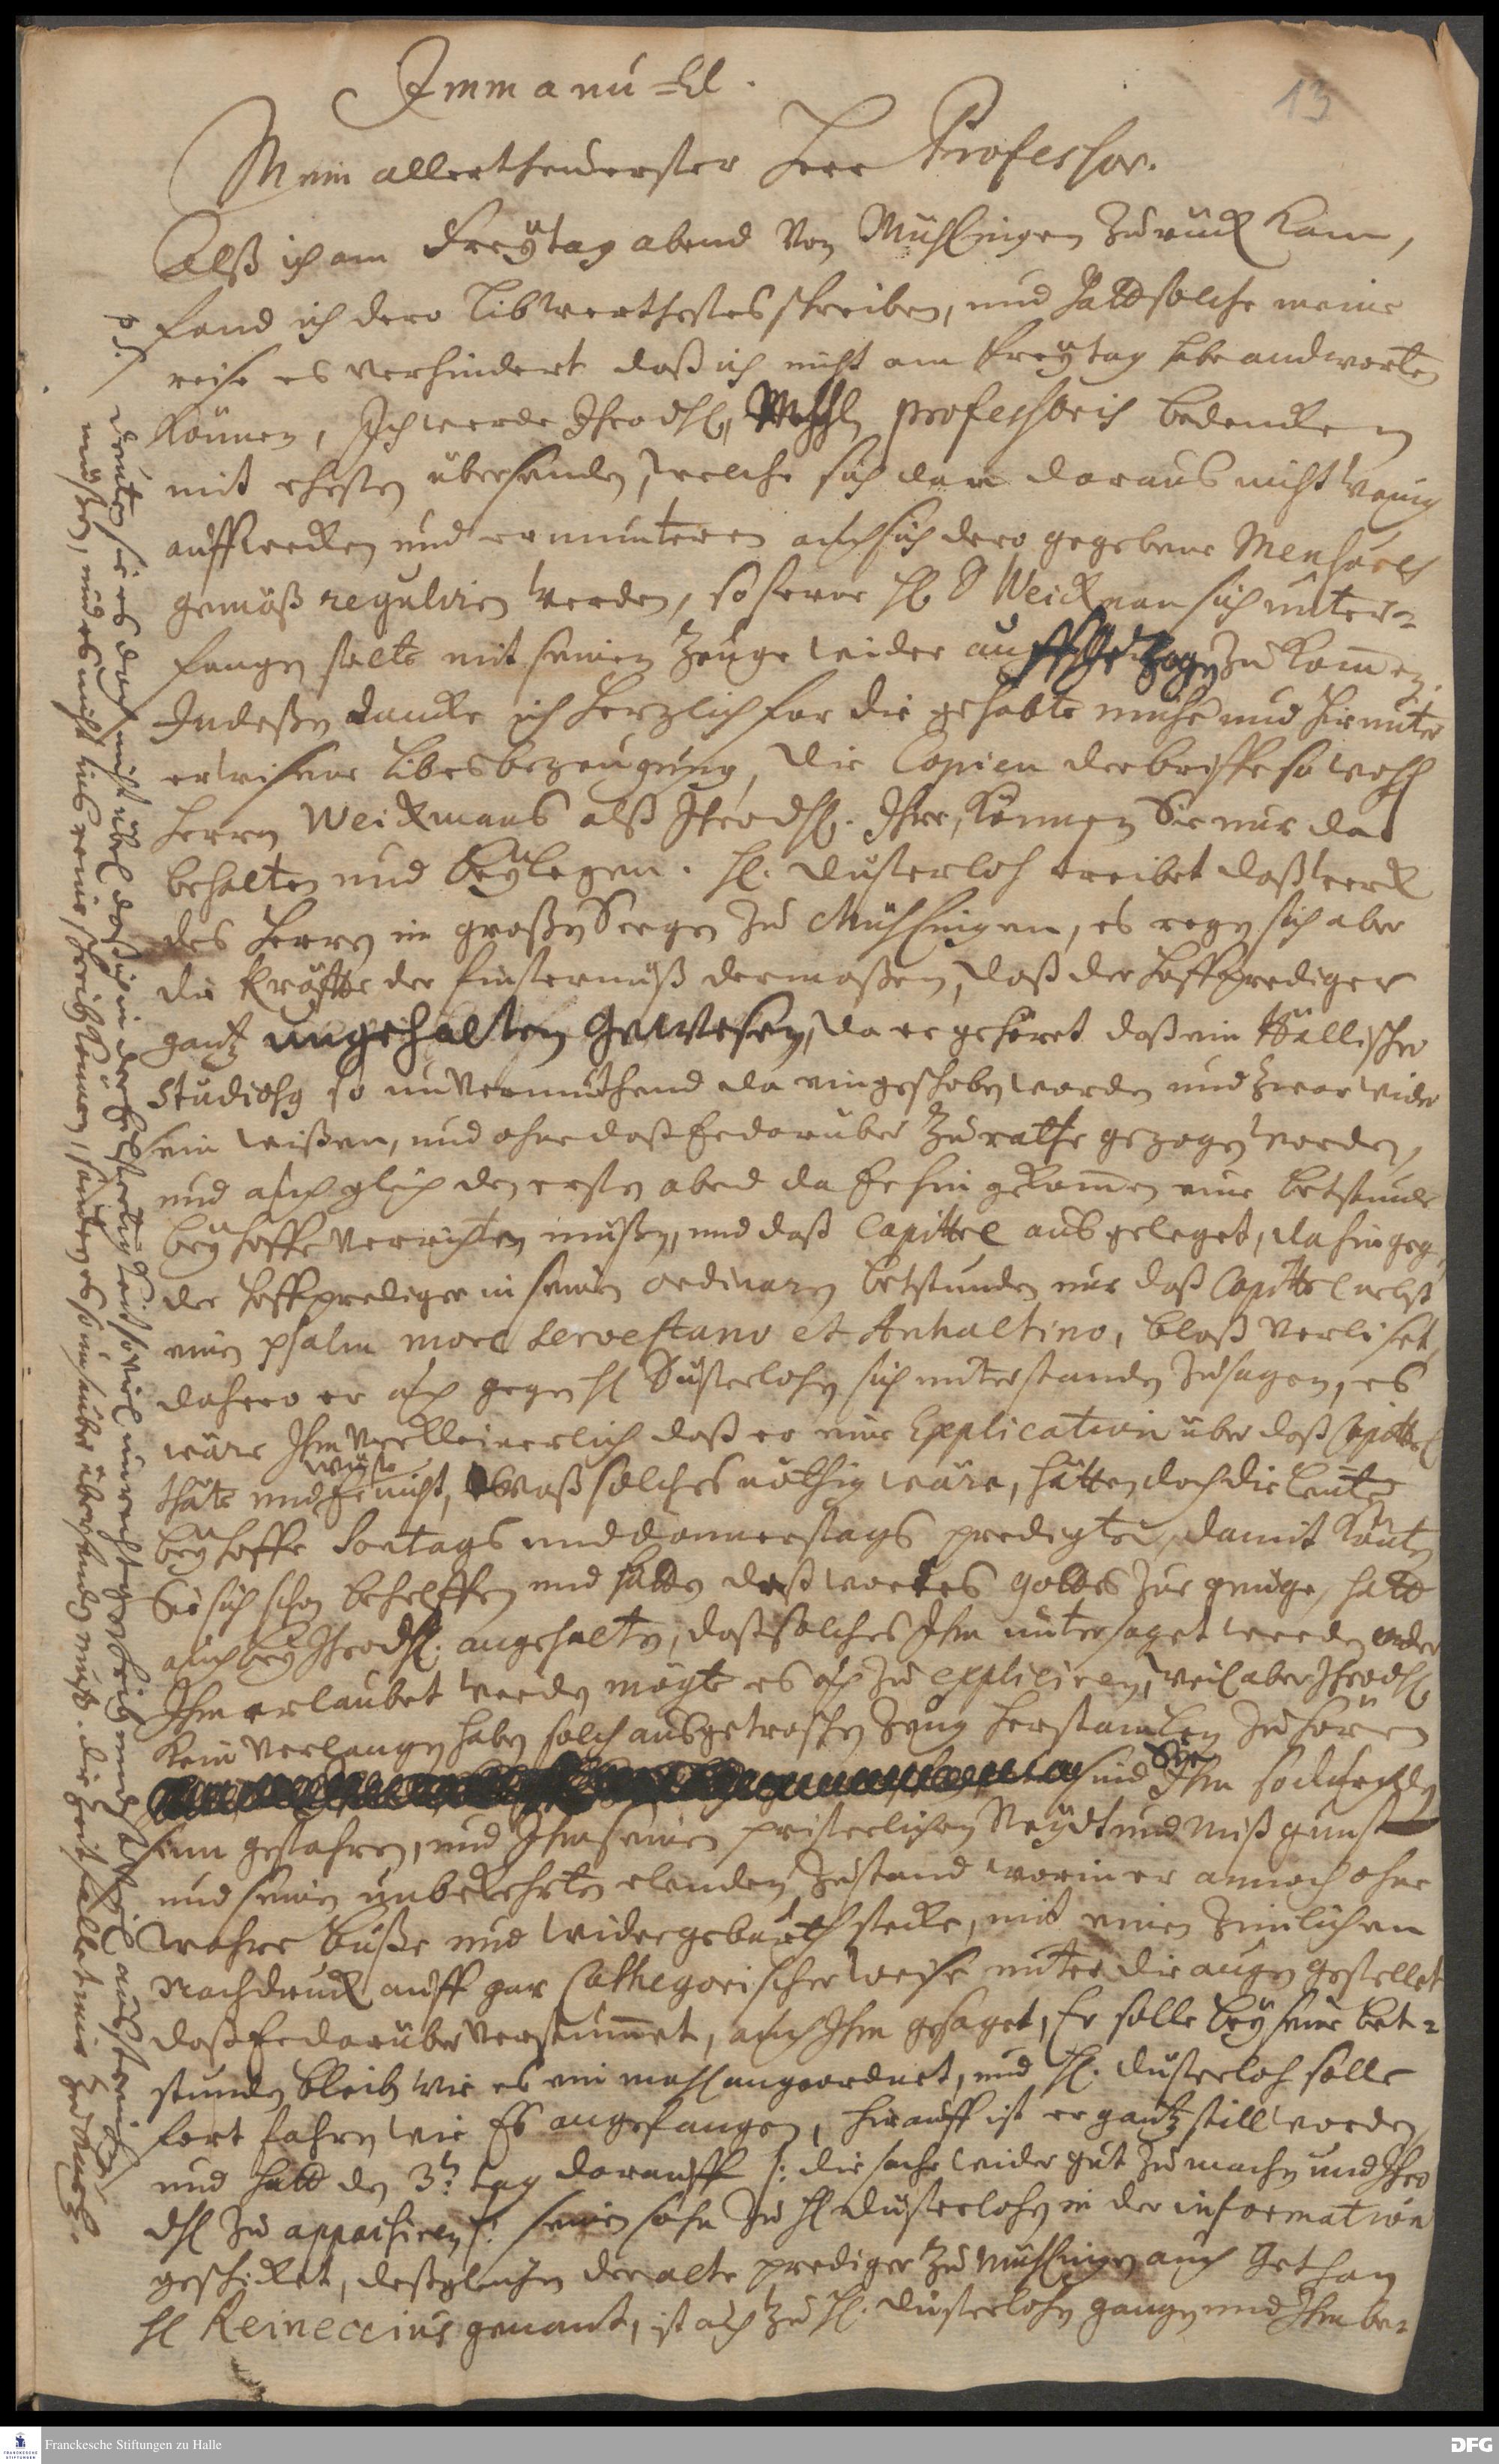 Immanu-El.
13
Mein allertheuerster Herr Professor.
Alß ich am Freÿtag abend von Mühlingen zurück kam,
fand ich dero libwerthestes schreiben, und hatt solche meine
reise es verhindert daß ich nicht am freÿtag habe andworten
können, Ich werde Ihro dhl. professoris bedencken
mit ehesten übersenden, welche sich dan daraus nicht wenig
auffwecken und ermunteren auch sich dero gegebene
gemäß reguliren werden, so ferne H. D Weickman sich unter-
fangen solte mit seinen Zeuge wider zu kommen.
Indeßen dancke ich herzlich for die gehabte mühe und hirunter
erwisene libesbezeugung, die Copien der briffe so wohl
Herrn Weickmans alß Ihro dhl. Ihre, können Sie nur da
behalten und beÿlegen. H. Dusterloh treibet daß werck
des Herrn in großen Seegen zu Mühlingen, es regen sich aber
die kräffte der finsternuß dermaßen, daß der hoffprediger
gantz ungehalten gewesen, da er gehöret daß ein Hällischer
Studiosus so unvermuthend da eingeschoben worden und zwar wider
sein wißen, und ohne daß Er darüber zu rathe gezogen worden,
und auch gleich den ersten abend da Er hin gekommen eine betstunde
beÿ hoffe verrichten müßen, und daß Capittel ausgeleget, da hingegen
der hoffprediger in seinen ordinaren betstunden nur daß Capittel nebst
einen psalm more Servestano et Anhaltino, bloß verliset,
dahero er auch gegen H. Dusterlohen sich unterstanden zu sagen, es
wäre Ihm verkleinerlich daß er eine Explication über daß Capittel
thäte und Er wüste nicht, waß solches nöthig wäre, hätten doch die leute
beÿ hoffe Sontags und donnerstags predigten, damit könten
Sie sich schon behelffen und hatten deß wortes gottes zur gnüge, hatt
auch beÿ Ihro dhl. angehalten, daß solches Ihm untersaget werden oder
Ihm erlaubet werden mögte es auch zu expliciren, weil aber Ihro dhl.
kein verlangen haben solch ausgetroschen Zeug zu hören
sind Sie Ihm
gefahren, und Ihm seinen pristerlichen Neydt und mißgunst
und seinen unbekehrten elenden zustand worin er annoch ohne
wahre buße und widergeburth stecke, mit einen zimlichen
Nachdruck auff gar Cathegorischer weise unter die augen gestellet
daß Er darüber verstummet, auch Ihm gesaget, Er solle beÿ seine bet-
stunden bleiben wie es ein mahl angeordnet, und H. Dusterloh solle
fort fahren wie Es angefangen, hirauff ist er gantz still worden,
und hatt den 3ten tag darauff /: die sache wider gut zu machen und Ihro
dhl zu appaisiren :/ seinen sohn zu H. Dusterlohen in der information
geschicket, deßgleichen der alte prediger zu Mühlingen auch gethan
H. Reineccius genant, ist auch zu H. Dusterlohen gangen und Ihm be-
p.s.
deuten sie es doch nicht übel daß ich in derselben so viel unrecht geschrieben
müßen, und es nicht ins reine schreiben können,